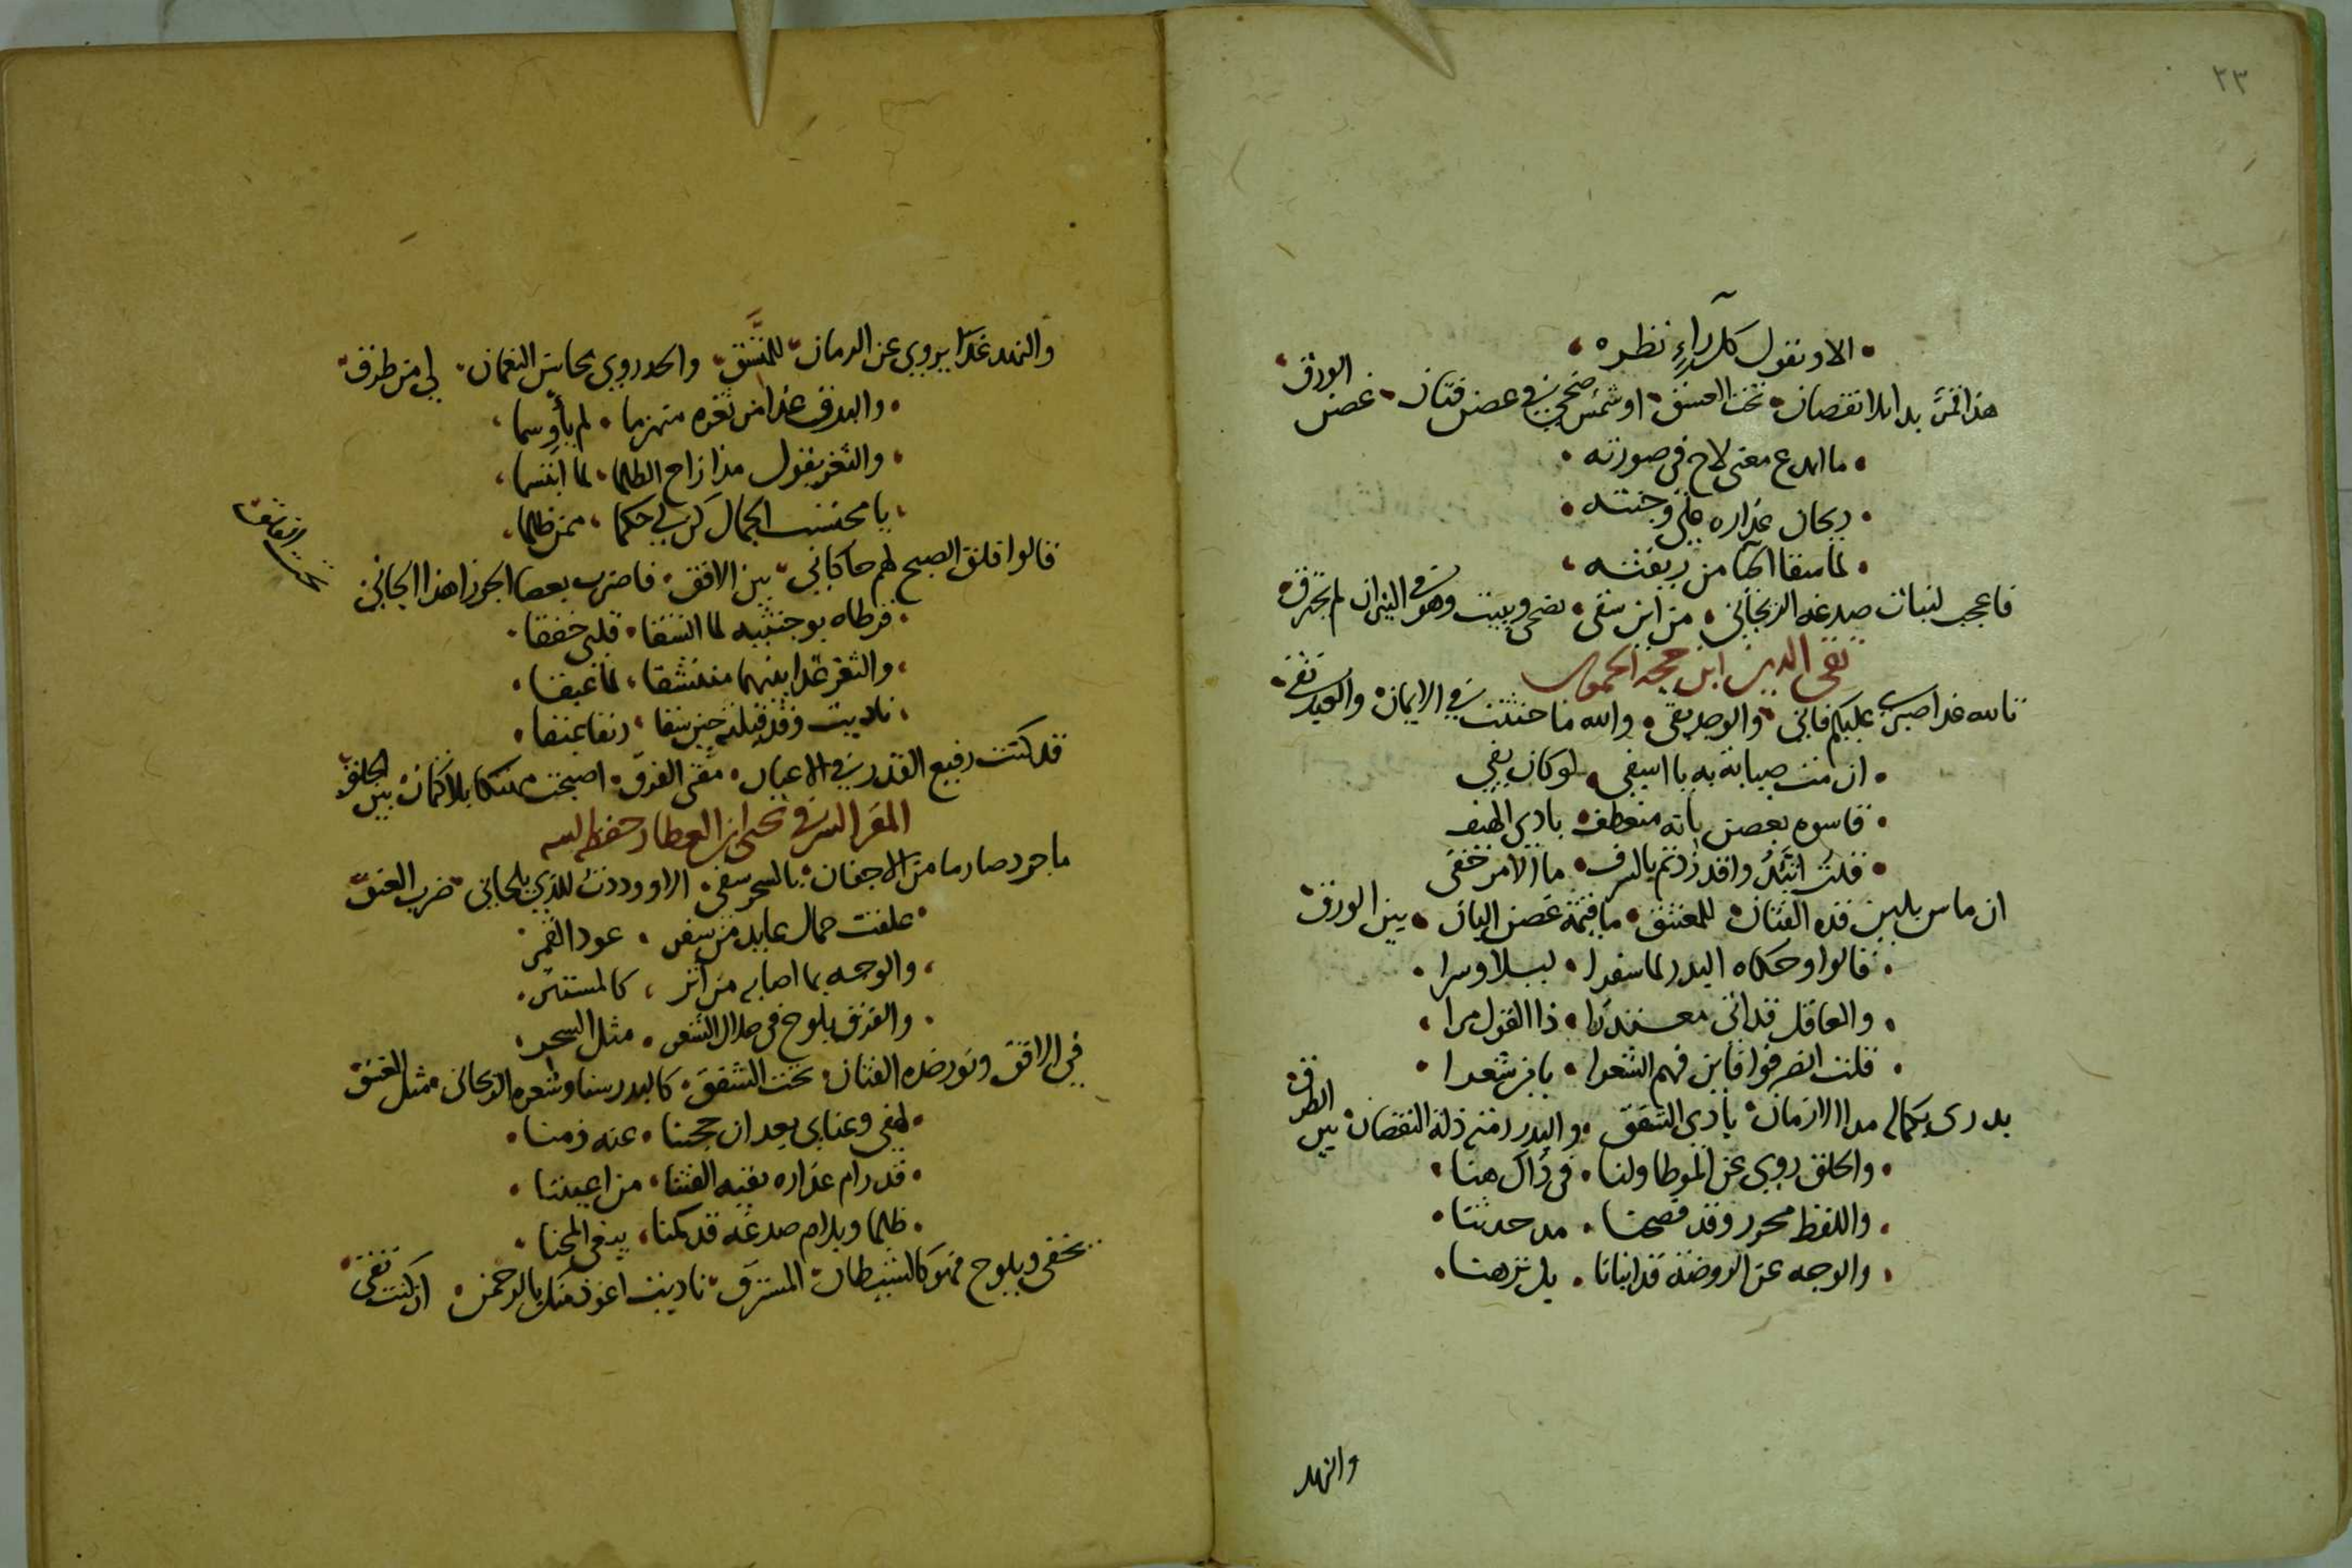 ٢٣
الا ويقول كل راءٍ نظره
هذا قمر بدا بلا نقصان تحت الغسق او شمس ضحى في غصن فتان غصن الورق
ما ابدع معنى لاح في صورته
ريحان عذاره على وجنته
لما سقا الحيا من ريقته
فاعجب لنبات صدغه الريحاني من اين سقى يضحى ويبيت وهو في النيران لم يحترق
تقى الدين ابن حجة الحموى
تالله غدا صبرى عليكم فانى والوجد بقى والله ما حنثت في الايمان والعهد نقى
ان مت صبابة به يا اسفى لو كان يفى
قاسوه بغصن بانه منعطف بادى الهيف
قلت اتئد وا قد زدتم بالسرف ما الامر خفى
ان ماس بلين قده الفتان للمعتنق ما قيمة غصن البان بين الورق
قالوا وحكاه البدر لما سفرا ليلا وسرا
والعاقل قد اتى معتذرا ذا القول مرا
قلت انصرفوا فاين فهم الشعرا يا من شعرا
بدرى بكمال مدا الازمان بادى الشفق والبدر رمته ذلة النقصان بين الطرق
والخلق روى عن الموطا ولنا في ذاك هنا
واللفظ محرر وقد فصحنا مد حدثنا
والوجه عن الروضة قد انبانا بل نزهنا
والنهد
والنهد غدا يروى عن الرمان للمنشق والخد روى محاسن النعمان لي من طرق
والبدر غدا من ثغره منهزما لم يأو سما
والثغر يقول مذا زاح الظلما لما ابتسما
يا محتسب الجمال كن لي حكما ممن ظلما
قالوا فلق الصبح لهم حاكاني بين الافق فاضرب بعصا الجوزا هذا الجاني تحت الغسق
قرطاه بوجنتيه لما اتسقا قلبى خفقا
والثغر غدا بينهما متسقا لما عبقا
ناديت وقد قبلته حين سقا رنقا بمنقا
قد كنت رفيع القدر في الاعيان مفتى الفرق اصبحت مهتكا بلا كتمان بين الخلق
المقر الشرفى يحيى ابن العطار حفظه الله
ما جرد صارما من الاجفان بالسحر سقى الا ووددت للذي يلحانى ضرب العنق
علقت جمال عايد من سفر عود القمر
والوجه بما اصابه من أثر كالمستتر
والفرق يلوح في خلال الشعر مثل السحر
في الافق ونور خده الفتان تحت الشفق كالبدر سنا وشعره الريحانى مثل الغسق
لهفى وعنايى بعد ان حجبنا عنه زمنا
قد رام عذاره يقيه الفتنا من اعيننا
ظلما وبلام صدغه قد كمنا يبغى المحنا
يخفى ويلوح فهو كالشيطان المسترق ناديت اعوذ منك بالرحمن ان كنت تقى